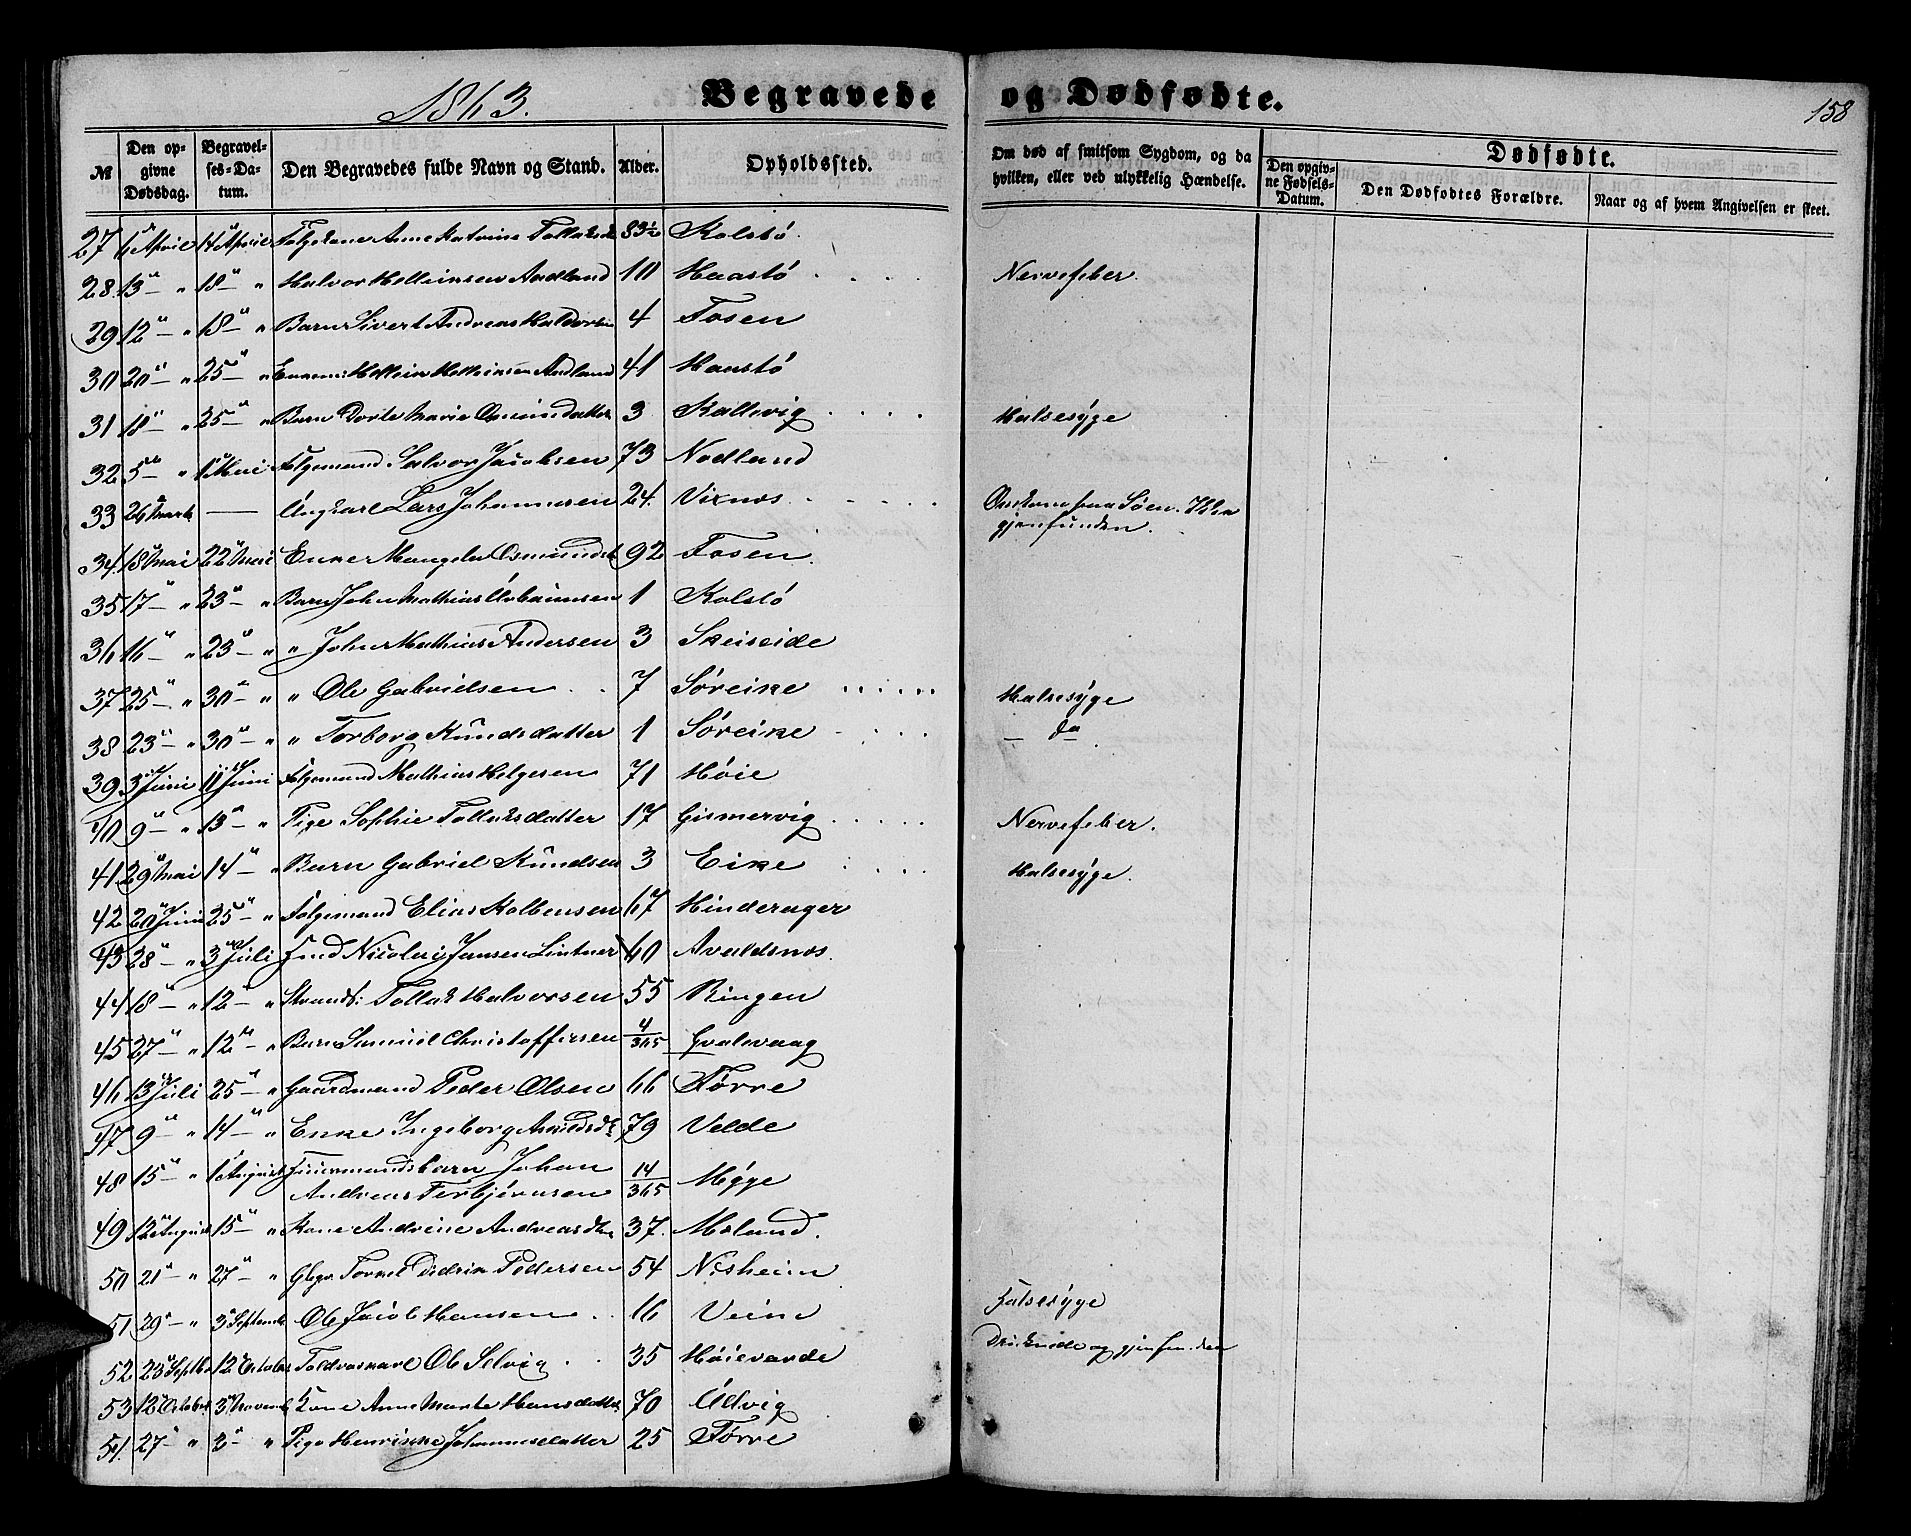 1863. Begravede og Dødfødte. 158
№ Den opgivne Dødsdag. Begravelses-Datum. Den Begravedes fulde Navn og Stand. Alder. Opholdssted. Om død af smitsom Sygdom, og da hvilken, eller ved ulykkelig Hændelse. Dødfødte. Den opgivne Fødsels-Datum. Den Dødfødtes Forældre. Naar og af hvem Angivelsen er skeet.
27 April April Anne Kolstø
28. 13 — " 18 — " Halvor Helleinsen Andland 18 Haastø Nervefeber.
29 12 — " 18 — " Barn Sivert Andreas 4 Fosen
30 20 — " 25 — " Hellein Helleinsen Andland 41 Haastø
31 18 — " 25 — " Barn Dorte Marie 3 Kallevig Halsesyge
32 5 " 1 Mai Salvor Jacobsen 73 Nodland
33 26 Marts — Ungkarl Lars Johannesen 24. Vixnes Søen. Ikke gjenfunden.
34. 18 Mai 22 Mai Enke Mangela Osmundsd. 92 Fosen.
35 17 — " 23 — " Barn John Mathias 1 Kolstø
36 16 — " 23 — " " John Mathias Andersen 3 Skeiseide
37 25 — " 30 — " " Ole Gabrielsen 7 Søreike Halsesyge
38 23 — " 30 — " " Torborg Knudsdatter 1 Søreike — do
39 3 Juni 11 Juni Mathias Helgesen 71 Høie
40 9 — " 13 — " Pige Sophie Tollaksdatter 17 Gismervig Nervefeber.
41 29 Mai 14 " Barn Gabriel Knudsen 3 Eike Halsesyge.
42 20 Juni 25 — " Elias Kolbensen 67 Hinderager
43 28 — " 3 Juli Nicolai Jansen Lintner 60 Avaldsnes.
44 18 — " 12 — " Tollak Halvorsen 55 Ringen
45 27 — " 12 — " Barn Samuel Christoffersen 4/365 Qvalevaag
46 13 Juli 25 — " Gaardmand Peder Olsen 66 Førre
47 9 — " 14 — " Enke Ingeborg 79 Velde
48 15 — " 1 August Johan
Andreas Torbjørnsen 14/365 Møgge
49 12 August 15 — " Kone Andrine Andreasdtr 37. Mæland.
50 21 — " 27 — " Tormod Didrik Pedersen 54 Nisheim
51 29 — " 3 September Ole Jacob Hansen 16 Veine Halsesyge
52 23 Septbr 12 October Ole Selvig 35 Høievarde Druknede og gjenfunden
53 12 October 3 November Kone Anne Marte Hansdatter 70 Udvig
54. 27 " 3 — " Pige Henrikke Johannesdatter 25 Førre